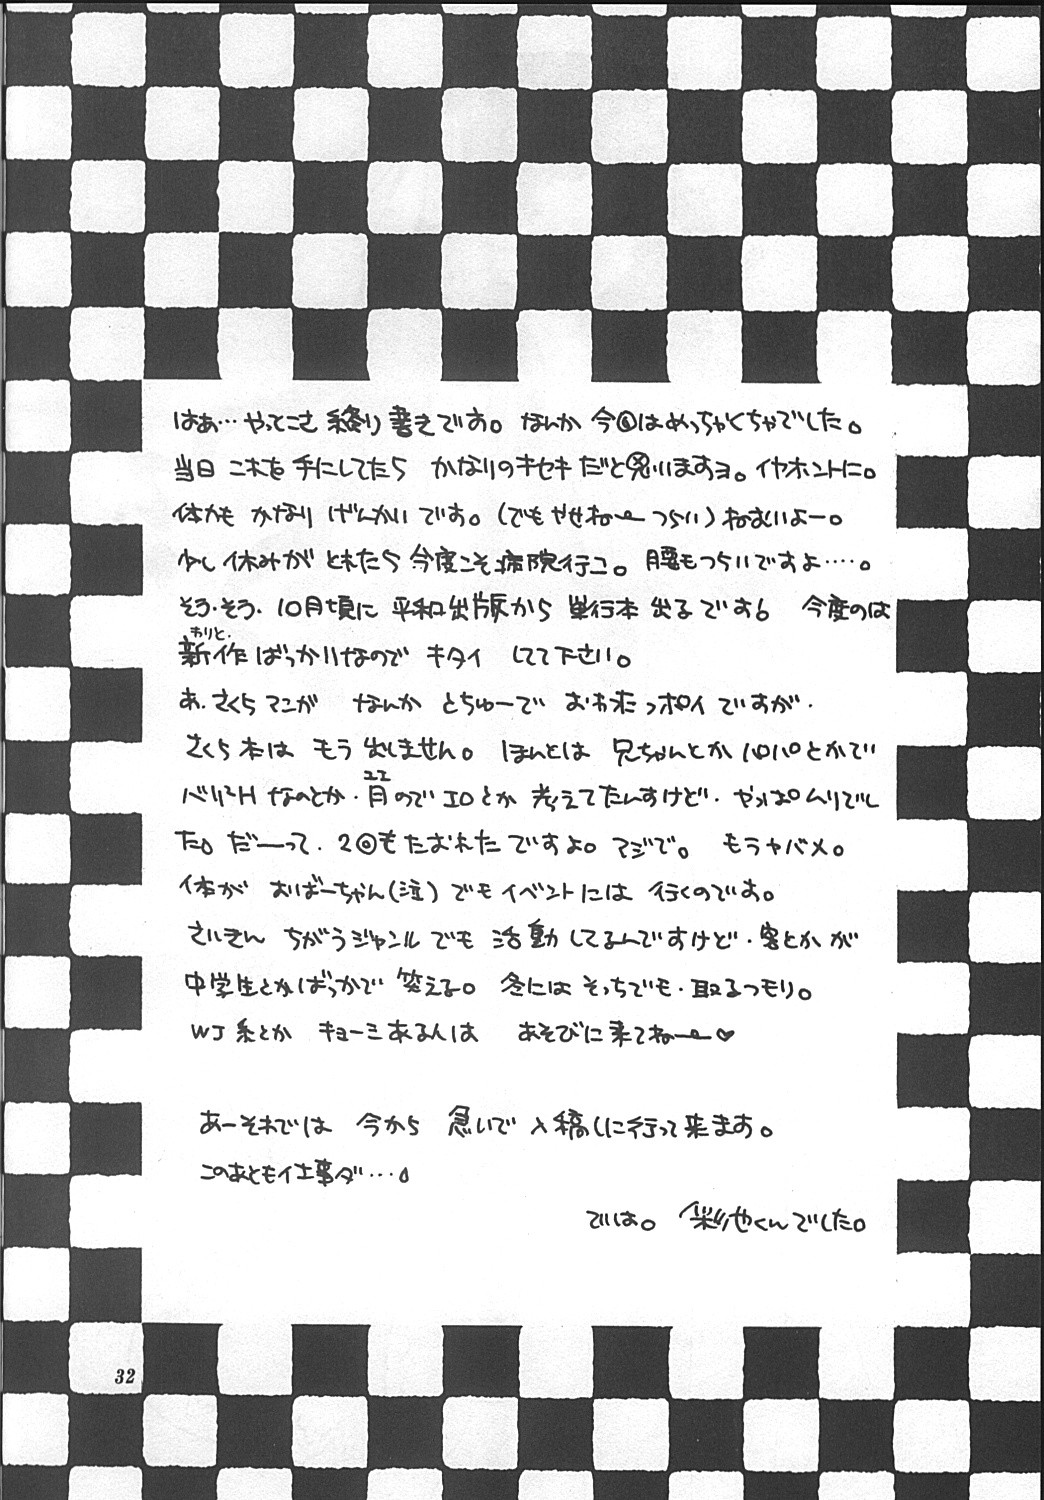 はぁ…やってこさ 終り書きです。なんか 今回はめっちゃくちゃでした。
当日 これを手にしてたら かなりのキセキだと思いますヨ。イヤホントに。
体力も かなり げんかいです。(でもやせねー つらい)ねむいよー。
少し 休みが とれたら 今度こそ病院行こ。 腰もつらいですよ……。
そう・そう・10月頃に 平和出版から 単行本 出るです。 今度のは
わりと
新作ばっかりなので キタイ してて下さい。
あ、さくらマンガ なんか とちゅーで おわたっポイですが・
さくら本は もう出しません。 ほんとは 兄ちゃんとかパパとかで
ユエ
ベリーHなのとか・月のでエロとか 考えてたんすけど・やっぱムリでし
た。だーって、2回もたおれたですよ。マジで。 もうヤバメ。
体が おばーちゃん(泣)でもイベントには 行くのです。
さいきん ちがうジャンルでも 活動してるんですけど・客とかが
中学生とかばっかで 笑える。 冬には そっちでも・取るつもり。
WJ系とか キョーミあるんは あそびに来てねー♡
あーそれでは 今から 急いで 入稿しに行って来ます。
このあとも仕事ダ…。
では。 彩池くんでした。
32